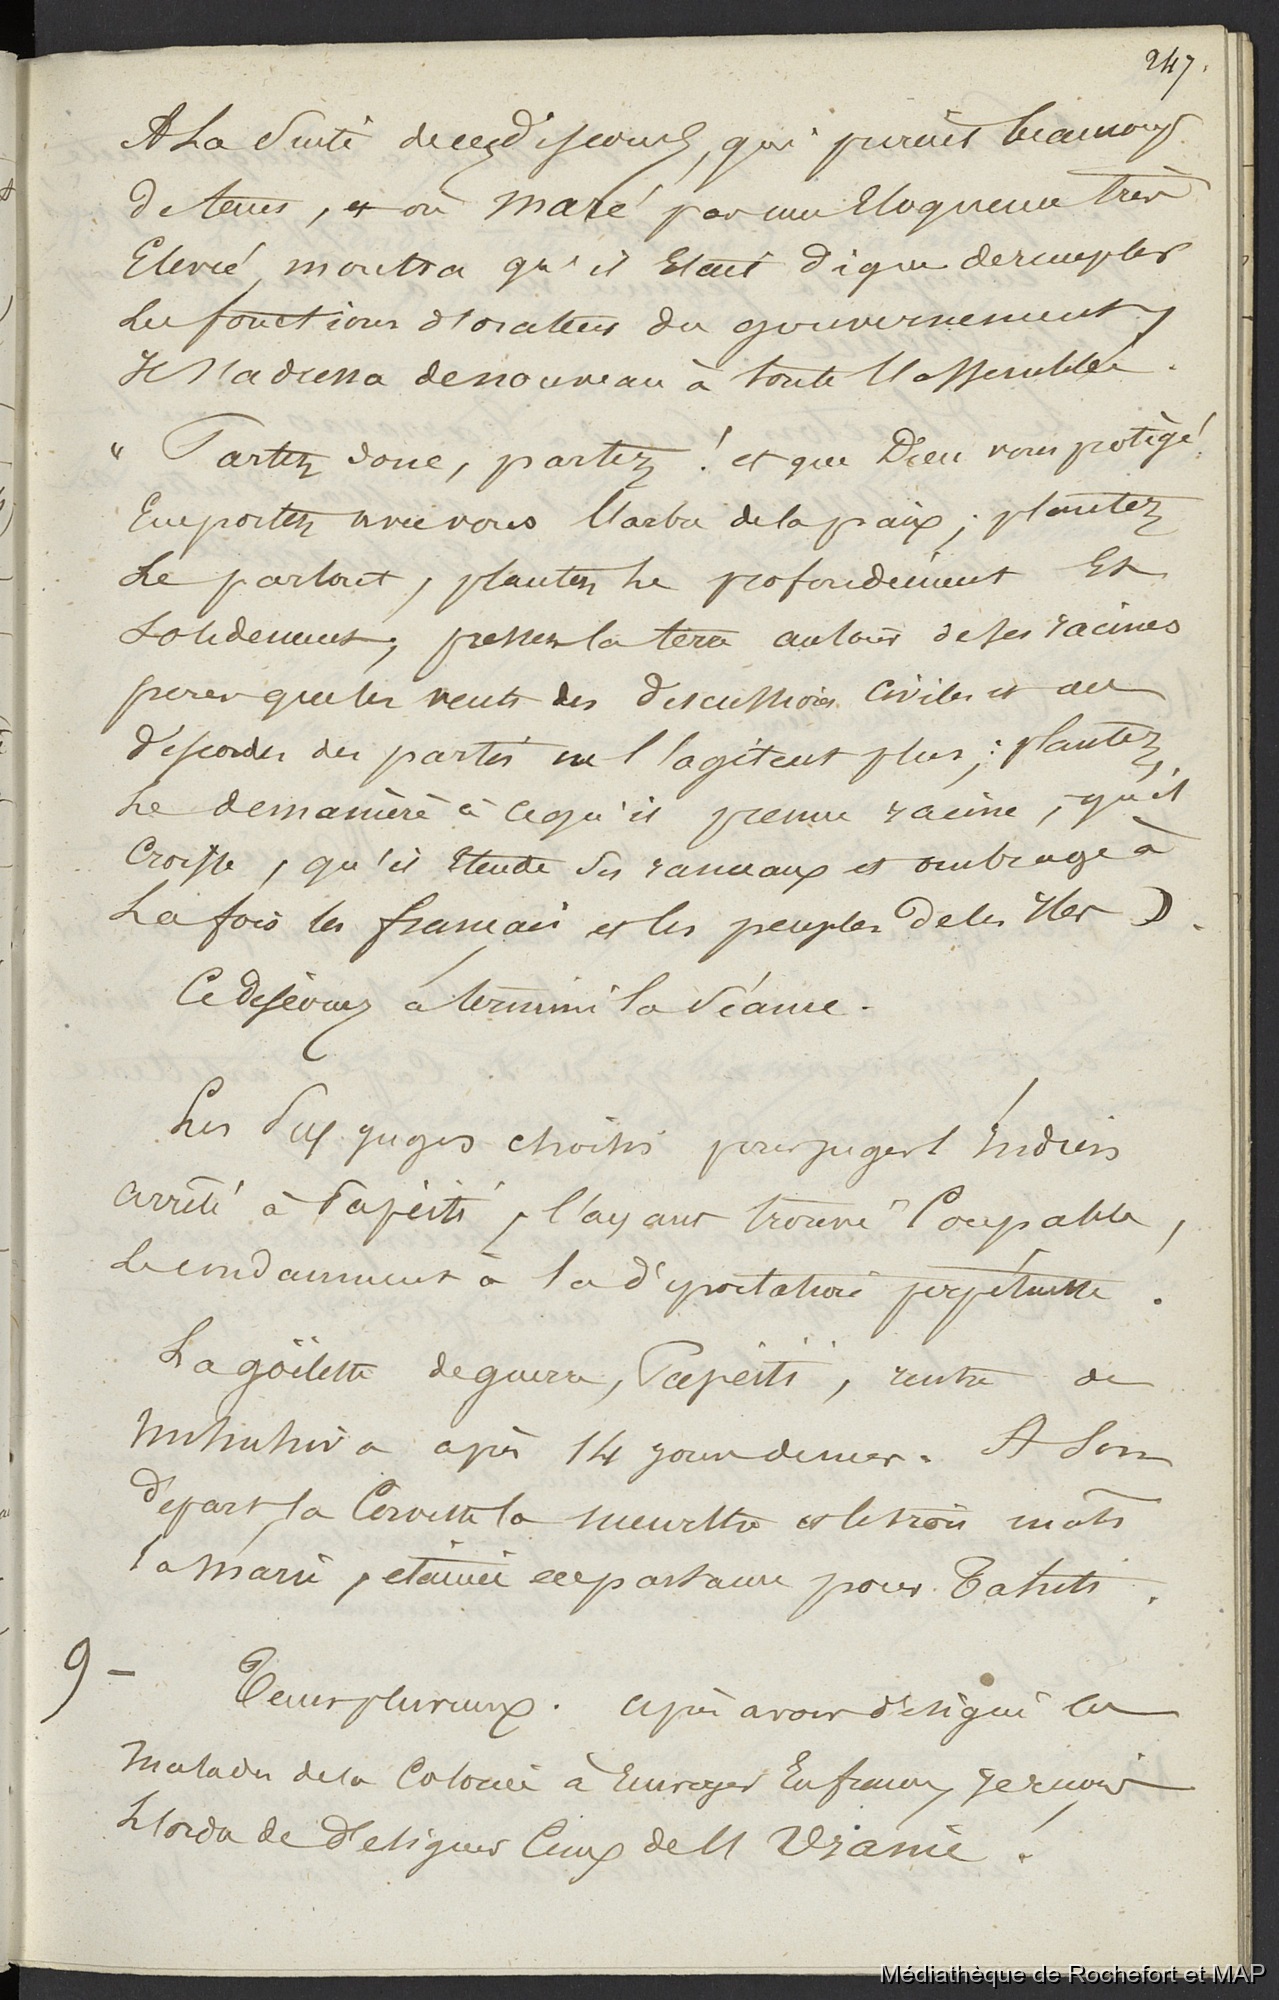 247.
A La Suite de ces discours, qui prirent beaucoup
de tems, et où Maré par une Eloquence très
Elevée, montra qu'il Etait digne de remplir
Les fonctions d'orateur du gouvernement,
Il S'adressa de nouveau à toute l'assemblée.
" Partez donc, partez ! et que Dieu vous protège!
Emportez avec vous l'arbre de la paix ; plantez
Le partout, plantez le profondément Et
Solidement, pressez la terre autour de ses racines
pour que les vents des discussions civiles et des
discordes des partis ne l'agitent plus ; plantez
Le de manière à ce qu'il prenne racine, qu'il
croisse, qu'il Etende ses rameaux et ombrage à
La fois les français et les peuples de les îles ".
Ce discours a terminé la Séance.
Les Six juges choisis pour juger l'indien
arrêté à Papéiti, l'ayant trouvé Coupable,
Le condamnent à la déportation perpétuelle.
La goëlette de guerre, Papeiti, rentre de
Nuhuhiva après 14 jours de mer. A Son
départ, la Corvette la meurthe et le trois mâts
la Marie, étaient en partance pour Tahiti.
9 - Tems pluvieux. après avoir désigné les
Malades de la Colonie à Envoyer En france, je reçois
L'ordre de désigner Ceux de l'Uranie !
Médiathèque de Rochefort et MAP